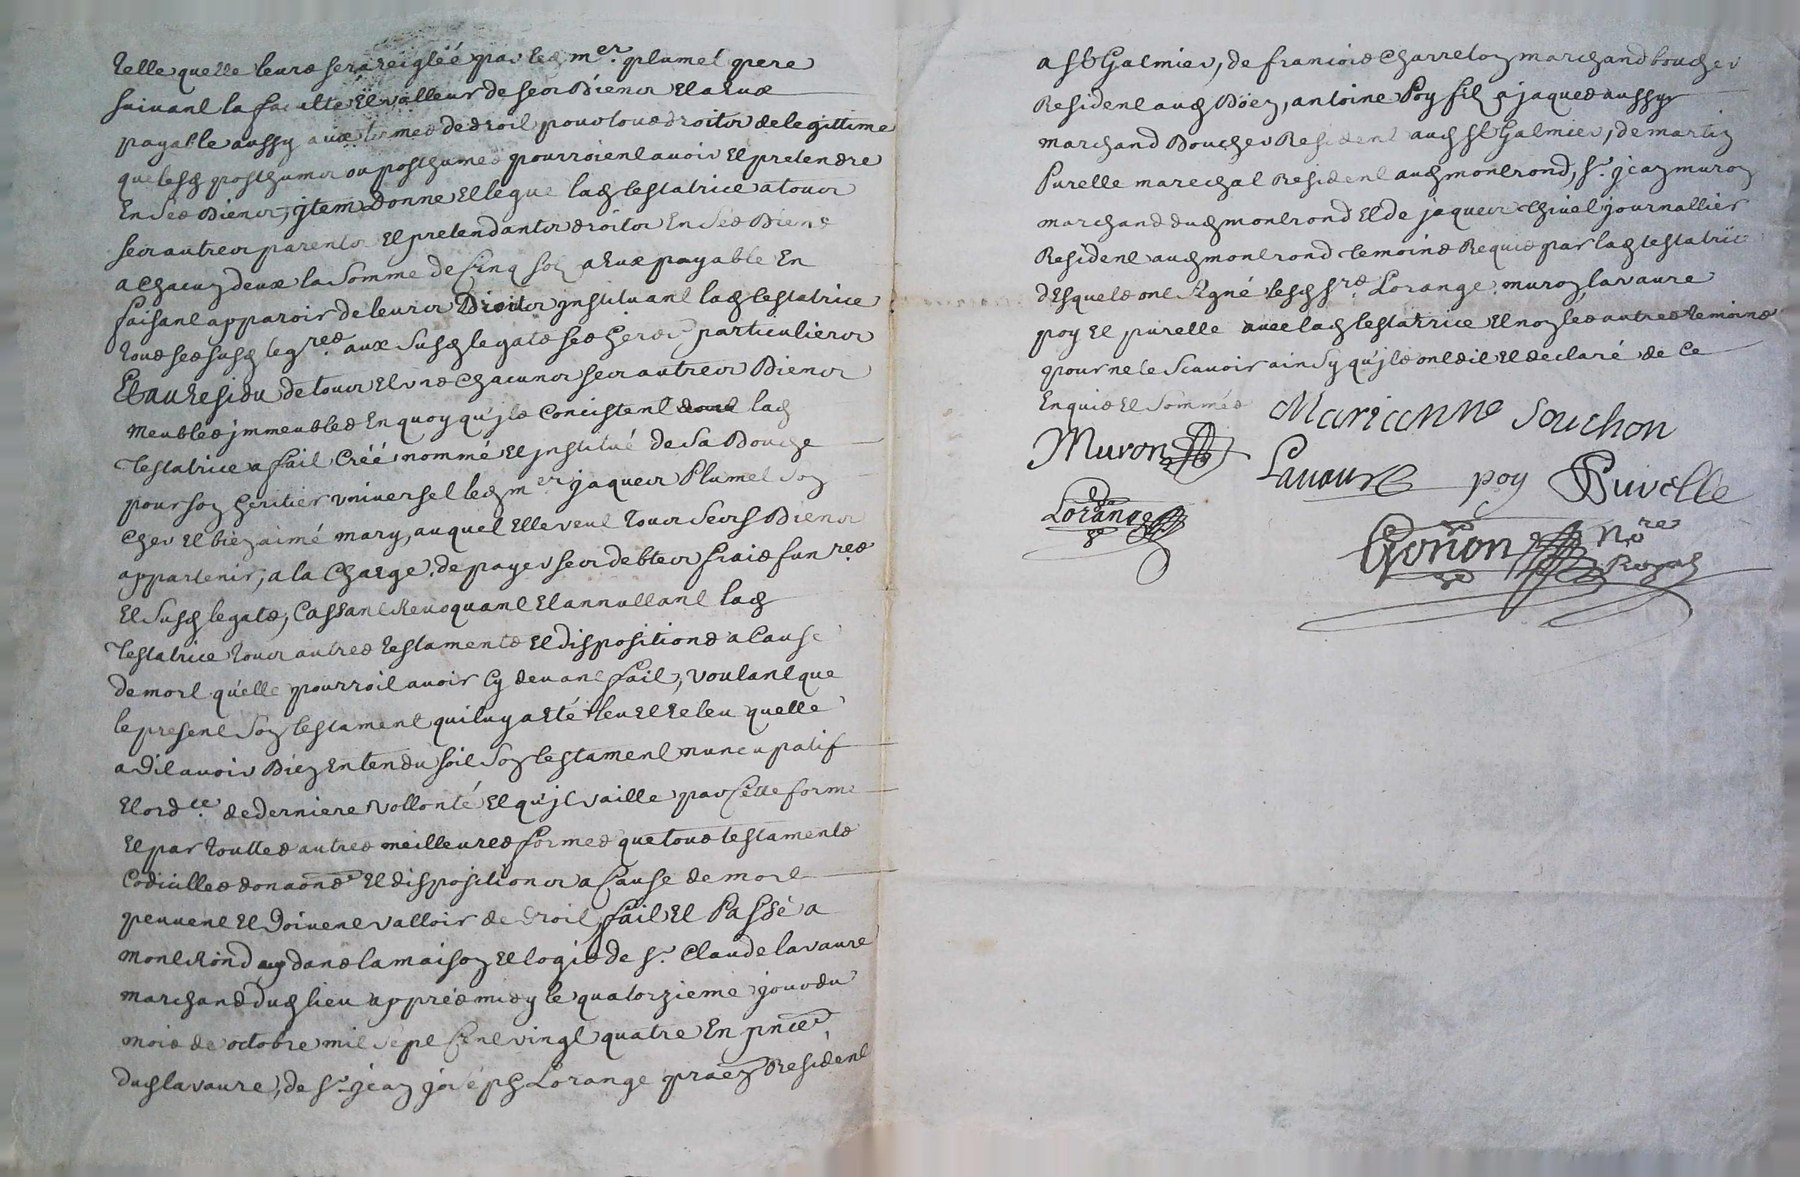 telle quelle leurs sera reiglée par led mer. plumet pere
suivant la faculté et valleur de ses Biens et a eux
payable aussy aux termes de droit pour tous droits de legittime
que lesd posthumes ou posthumes pourroient avoir et pretendre
En ses Biens, jtem donne et legue lad testatrice a tous
ses autres parents et pretendants droits En ses Biens
a chacun deux la somme de Cinq sols a eux payable En
faisant apparoir de leurs Droits instituant lad testatrice
tous ses susd legres. aux susd legats ses heres particuliers
Et au residu de tous et uns chacuns ses autres Biens
meubles jmmeubles En quoy qu'jls concistent lad
testatrice a fait créé nommé et jnstitué de sa Bouche
pour son heritier universel led mer jaques Plumet son
cher et bien aimé mary, auquel Elle veut tous sesd Biens
appartenir, a la charge de payer ses debtes frais funres.
et susd legats, Cassant Revoquant et annullant lad
testatrice tous autres testaments et dispositions a cause
de mort qu'elle pourroit avoir cy devant fait, voulant que
le present son testament qui luy a eté leu et releu quelle
a dit avoir Bien entendu soit son testament nuncupatif
et ordce. de derniere vollonté et qu'jl vaille par cette forme
et par touttes autres meilleures formes que tous testaments
codicilles donaons et dispositions a cause de mort
peuvent et doivent valloir de droit, fait et Passé a
montrond dans la maison et logis de sr. Claude lavaure
marchand dud lieu apprés midy le quatorzieme jour du
mois de octobre mil sept cent vingt quatre En pnce
dud lavaure, de sr. jean joseph Lorange pratien Resident
a st Galmier, de francois Charreton marchand boucher
Resident aud Böen, antoine Poy fils a jaques aussy
marchand Boucher Resident aud st Galmier, de martin
Purelle marechal Resident aud montrond, sr. jean muron
marchand dud montrond et de jaques thivel journallier
Resident aud montrond temoins Requis par lad testatrice
desquels ont signé lesd srs. Lorange, muron, lavaure
poy et purelle avec lad testatrice et non les autres temoins
pour ne le scavoir ainsy qu'jls ont dit et declaré de ce
Enquis et sommés
Marianne Souchon
Muron Lavaure poy Purelle
Lorange
Gonon Nre
Royal